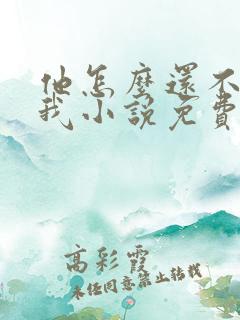 他怎麼還不
我小說免費
高彩霞
未经同意禁止转载